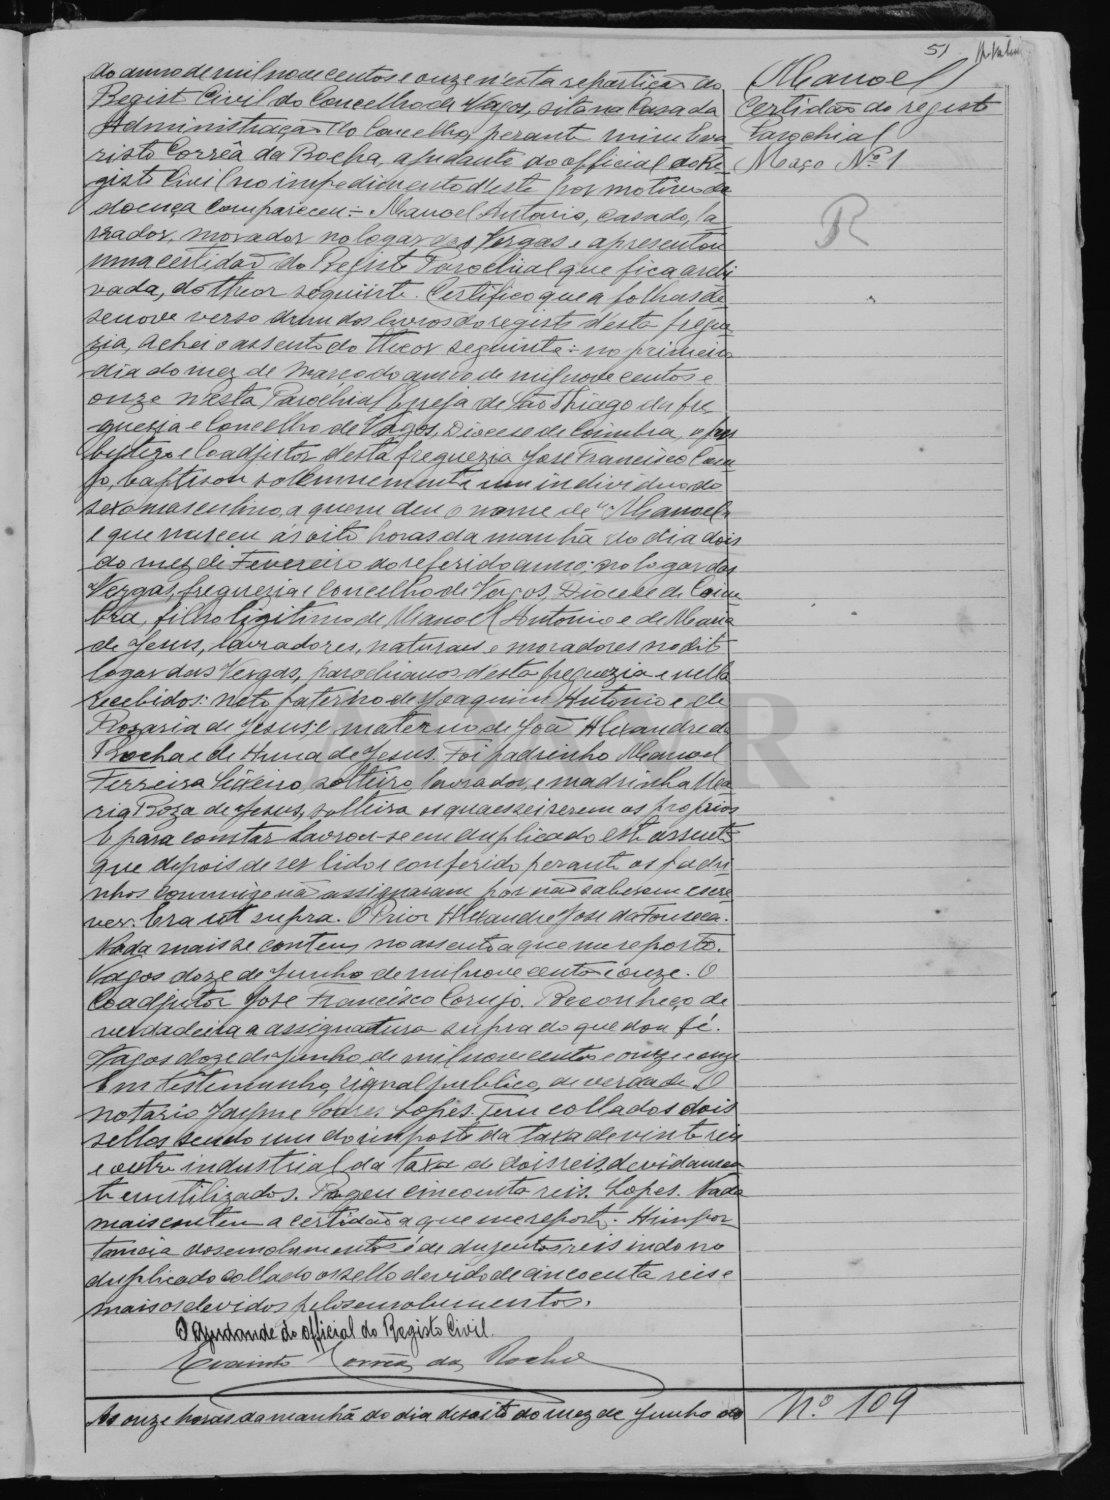 51
do anno de mil novecentos e onze n'esta repartição do
Regist Civil do Concelho de Vagos, sita na Casa da
Administração do Concelho, perante mim Eva
risto Corrêa da Rocha, ajudante do official do Re
gisto Civil no impedimento d'este por motivo de
doença compareceu:- Manoel Antonio, casado, la
vrador, morador no logar das Vergas e apresentou
uma certidão do Registo Parochial que fica archi
vada, do theor seguinte. Certifico que a folhas de
senove verso d'um dos livros do registo d'esta fregue
zia, achei o assento do theor seguinte:- no primeiro
dia do mez de Março do anno de mil nove centos e
onze n'esta Parochial Egreja de São Thiago da fre
guezia e Concelho de Vagos, Diocese de Coimbra, o pres
bytero e Coadjutor d'esta freguezia José Francisco Coru
jo, baptisou solemnemente um individuo do
sexo masculino, a quem deu o nome de "Manoel"
e que nasceu ás oito horas da manhã do dia dois
do mez de Fevereiro do referido anno: no logar das
Vergas, freguezia e concelho de Vagos, Diocese de Coim
bra, filho ligitimo de Manoel Antonio e de Maria
de Jesus, lavradores, naturaes e moradores no dito
logar das Vergas, parochianos d'esta freguezia e n'ella
recebidos: neto paterno de Joaquim Antonio e de
Rosaria de Jesus: e materno de João Alexandre da
Rocha e de Anna de Jesus. Foi padrinho Manoel
Ferreira, solteiro, lavrador, e madrinha Ma
ria Roza de Jesus, solteira os quaes sei serem os proprios
E para constar lavrou-se em duplicado este assento
que depois de ser lido e conferido perante os padri
nhos commigo não assignaram por não saberem escre
ver. Era ut supra. O Prior Alexandre José da Fonseca.
Nada mais se contem no assento a que me reporto.
Vagos doze de Junho de mil nove centos e onze. O
Coadjutor José Francisco Corujo. Reconheço de
verdadeira a assignatura supra do que dou fé.
Vagos doze de Junho de mil nove centos e onze e onze
Em testemunho, signal publico, de verdade. O
notario Jayme Lopes. Tem collados dois
sellos sendo um do imposto da taxa de vinte reis
e outro industrial da taxa de dois reis, devidamen
te inutilizados. Pagou cincoenta reis. Lopes. Nada
mais contem a certidão a que me reporto. A impor
tancia dos emolumentos é de duzentos reis indo no
duplicado collado o sello devido de cincoenta reis e
mais os devidos pelos emolumentos.
O Ajudande do official do Registo Civil.
Evaristo Corrêa da Rocha
As onze horas da manhã do dia desoito do mez de Junho do
Manoel
Certidão do registo
Parochial
Maço Nº 1
R
Nº 109